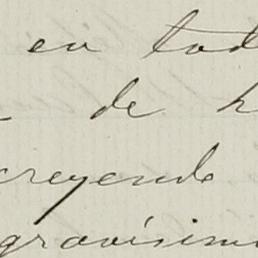 en tod
de h
creyendo
gravísim